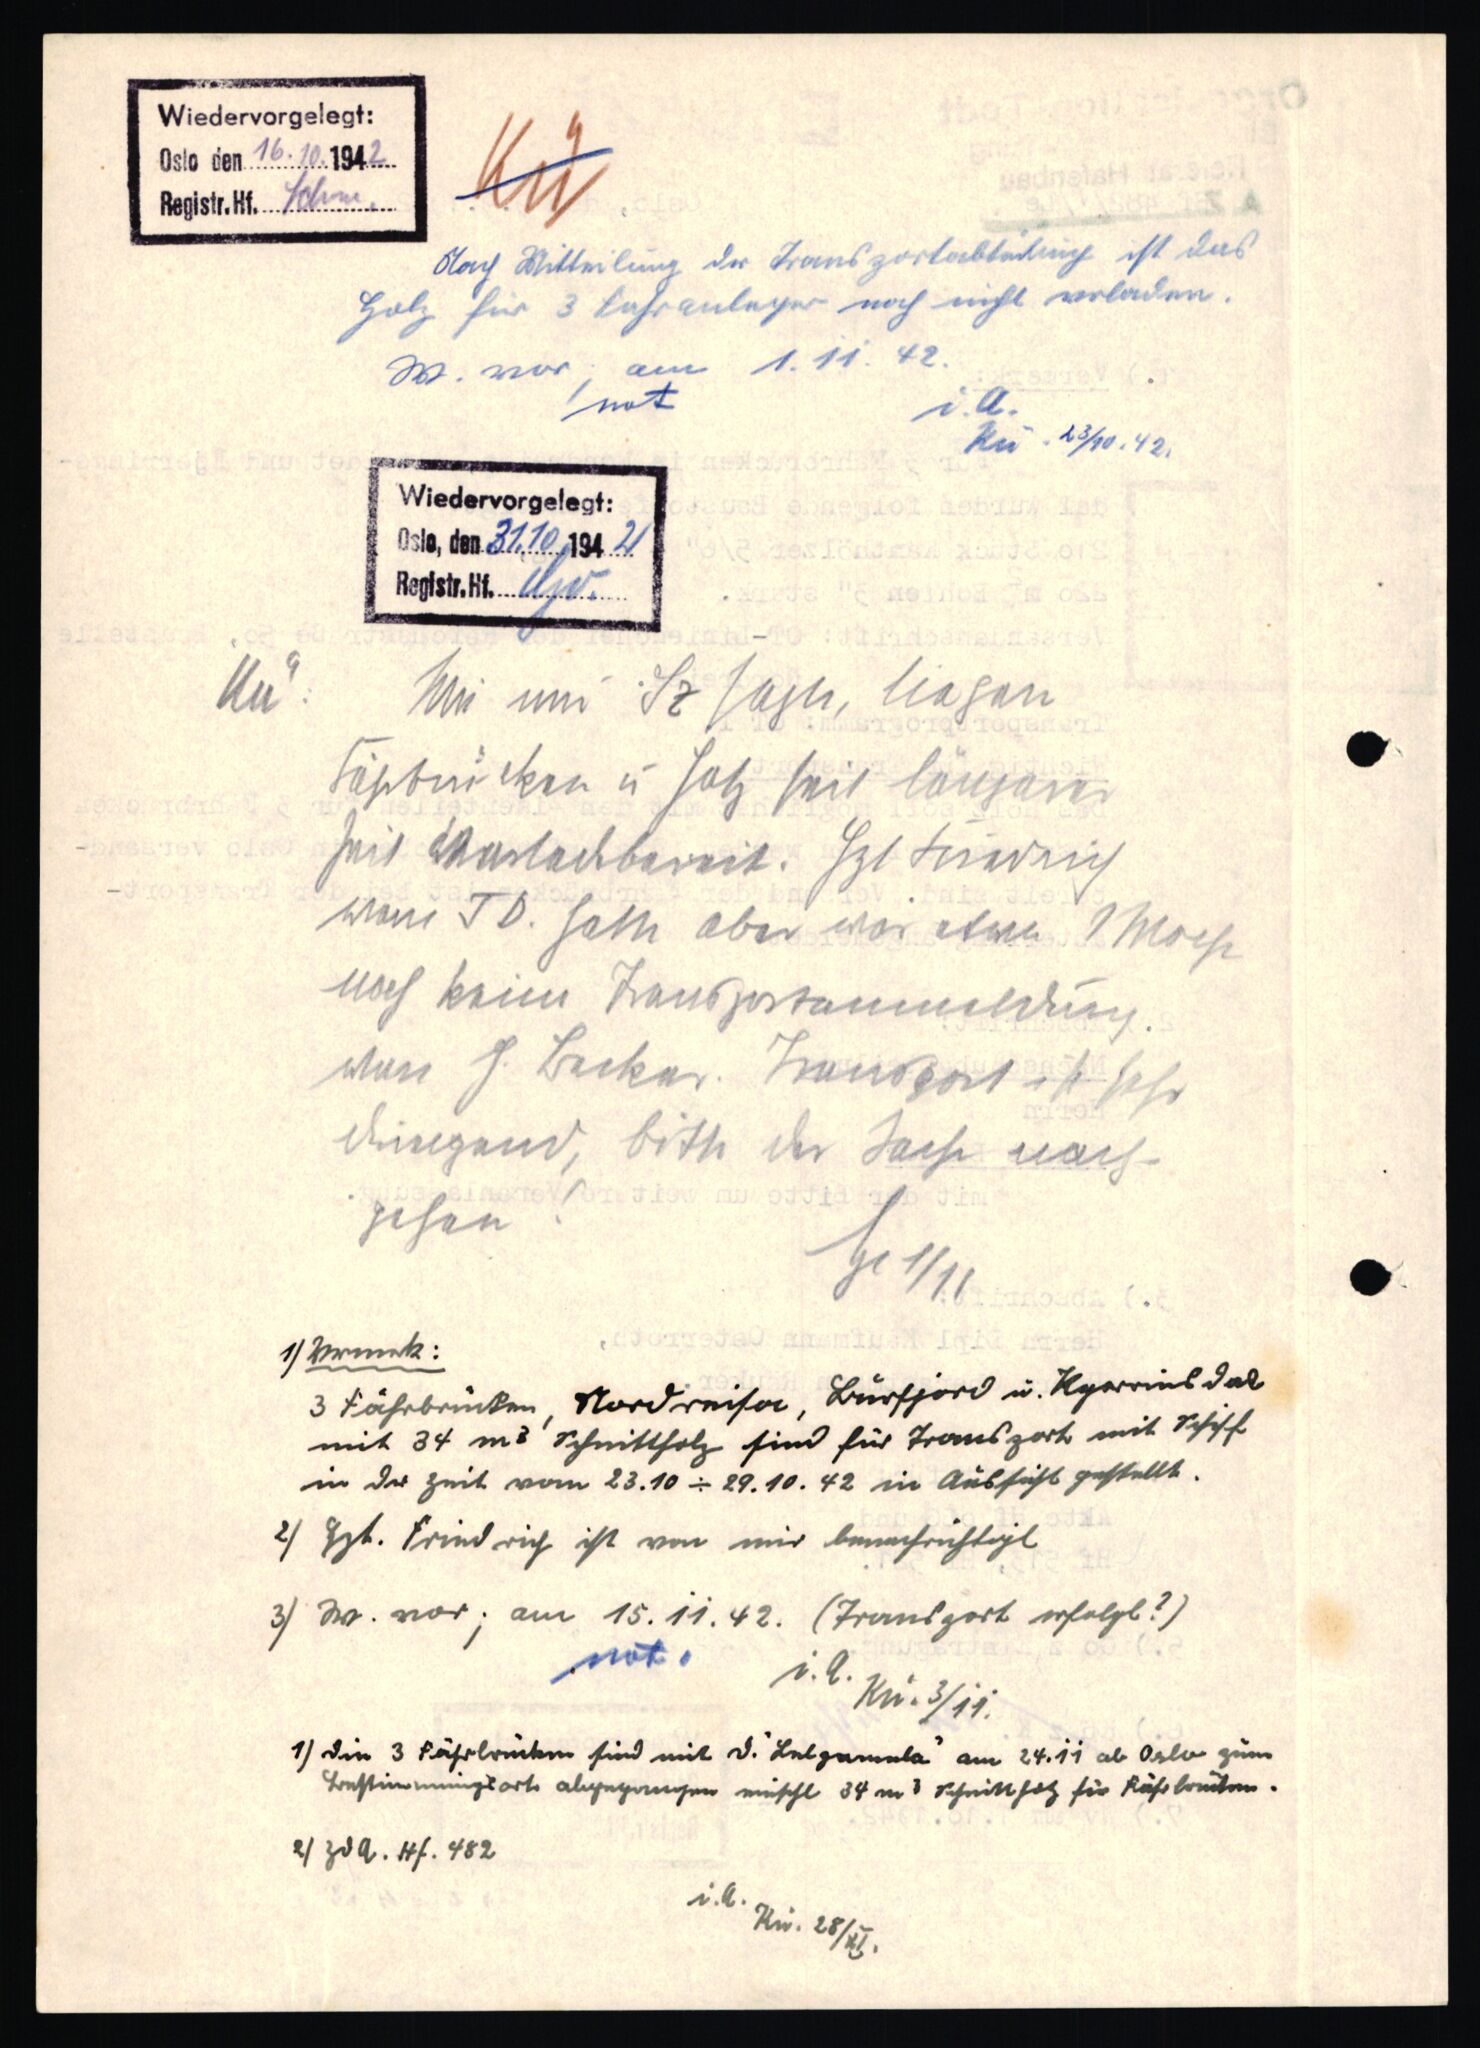 Wiedervorgelegt:
Oslo den 16.10. 1942
Registr. Hf.
Kü
Nach Mitteilung der Transportabteilung ist das
Holz für 3 Fähranleger noch nicht verladen.
W. vor; am 1.11.42.
not
i.A.
Kü. 23/10.42.
Wiedervorgelegt:
Oslo, den 31.10. 1942
Registr. Hf.
Kü:
Wie mir Sz sagte, liegen
Fährbrücken u Holz seit längerer
Zeit verladebereit. Hzl Friedrich
vom T D. hatte aber vor etwa 1 Woche
noch keine Transportanmeldung
von H. Becker. Transport ist sehr
dringend, bitte der Sache nach-
gehen!
1/11
1) Vermerk:
3 Fährbrücken, Nordreisa, Burfjord u. Kjerringdal
mit 34 m³ Schnittholz sind für Transport mit Schiff
in der Zeit vom 23.10 ÷ 29.10.42 in Aussicht gestellt.
2) Hzl. Friedrich ist von mir benachrichtigt
3) W. vor; am 15.11.42. (Transport erfolgt?)
not.
i.A.
Kü. 3/11.
1) Die 3 Fährbrücken sind mit D. "Lalgamela" am 24.11 ab Oslo zum
Bestimmungsort abgegangen einschl 34 m³ Schnittholz für Fährbrücken.
2) ZdA. Hf. 482
i.A.
Kü. 28/XI.